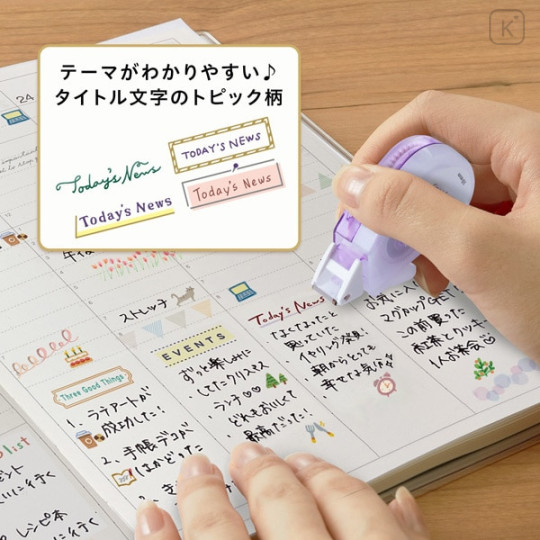 K
テーマがわかりやすい♪
タイトル文字のトピック柄
Today's News
TODAY'S NEWS
Today's News
Today's News
24
午後
ストレッチ
EVENTS
ずっと楽しみに
していたクリスマス
ランチ♡♡
どれもおいしくて
最高だった!
Today's News
なくてなったと
思っていた
イヤリング発見!
朝からとても
幸せな気分
お気に入り
マグカップGET!
この前買った
紅茶とクッキー
1人お茶会
Three Good Things
1. ラテアートが
成功した!
2. 手帳デコが
はかどった
3.
list
に行く
レシピ本